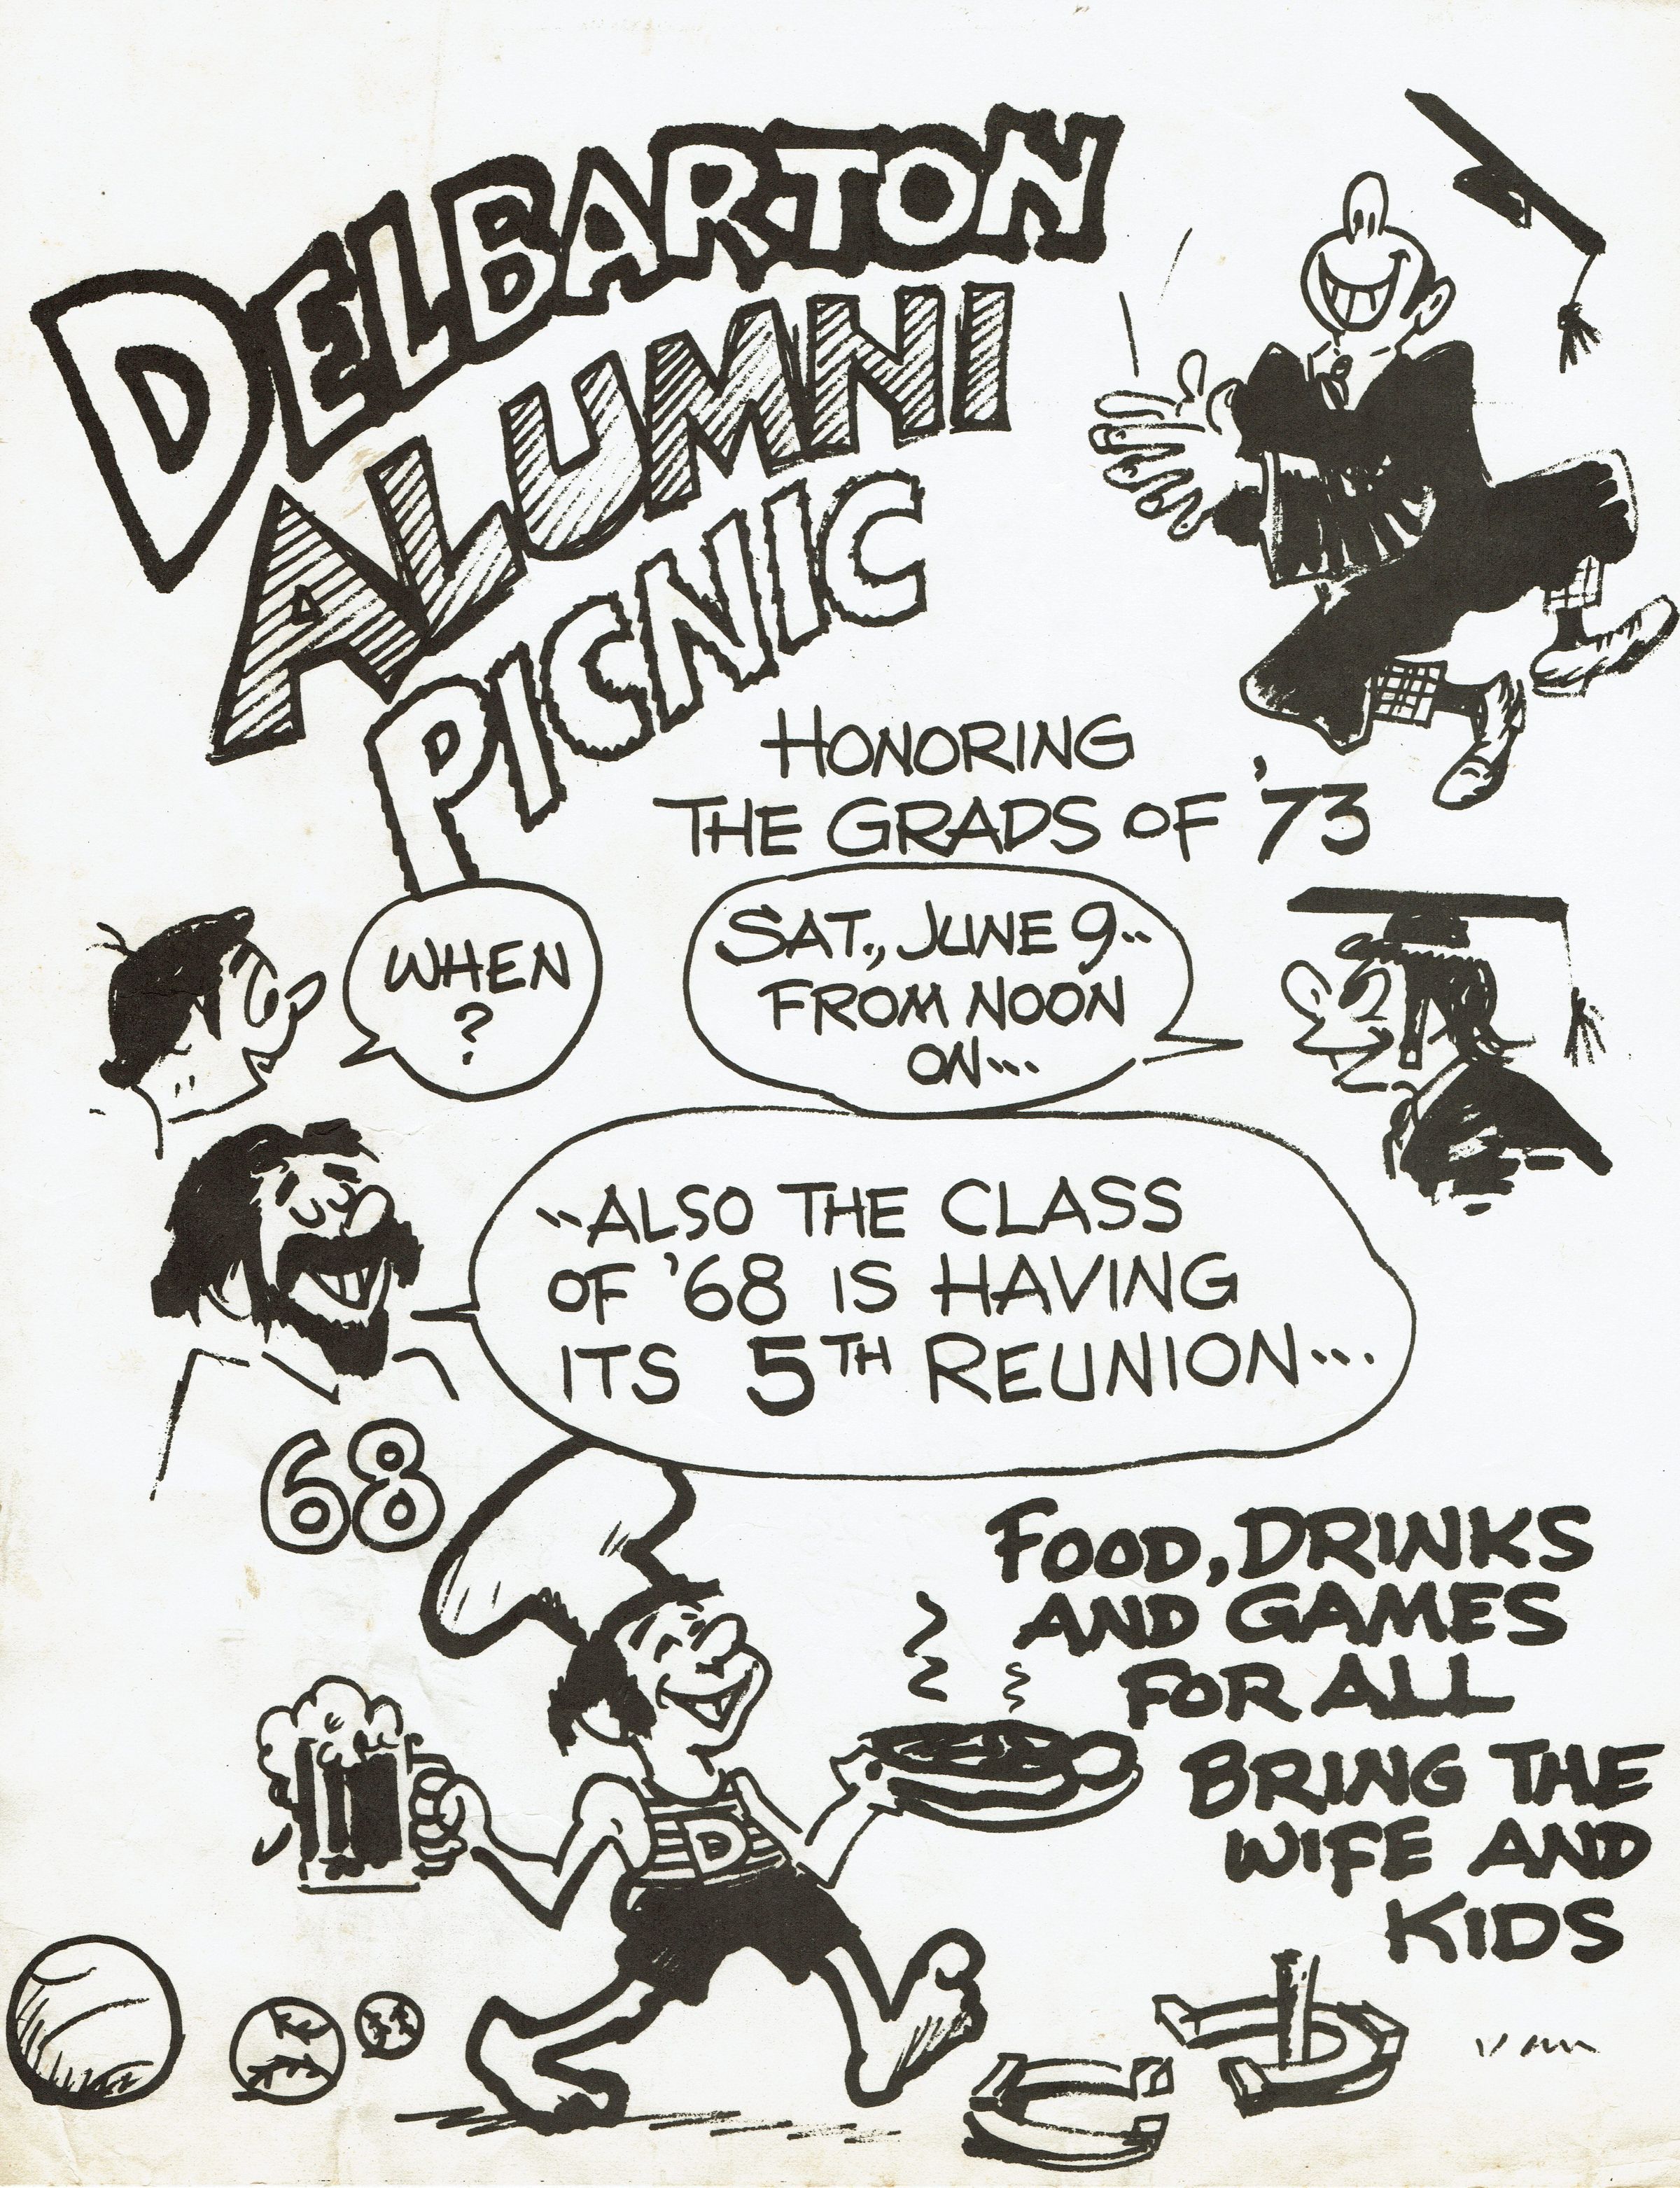 DELBARTON
ALUMNI
PICNIC
HONORING
THE GRADS OF '73
WHEN
?
SAT., JUNE 9..
FROM NOON
ON...
..ALSO THE CLASS
OF '68 IS HAVING
ITS 5TH REUNION...
68
FOOD, DRINKS
AND GAMES
FOR ALL
BRING THE
WIFE AND
KIDS
D
VAN